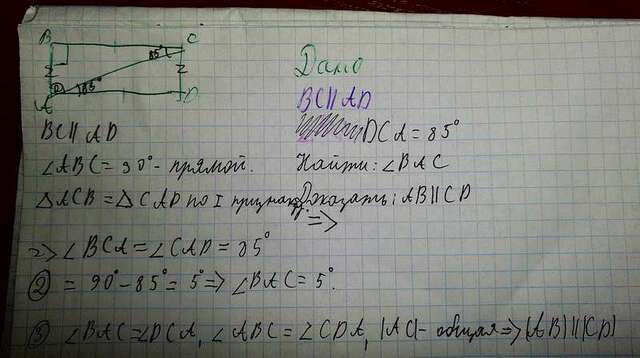 B C
85°
2 85°
A D
Дано
BC || AD
DCA = 85°
Найти: ∠BAC
Доказать: AB || CD
BC || AD
∠ABC = 90° - прямой.
△ACB = △CAD по I признаку. =>
=> ∠BCA = ∠CAD = 85°
② = 90° - 85° = 5° => ∠BAC = 5°.
③ ∠BAC = ∠DCA, ∠ABC = ∠CDA, |AC| - общая => |AB| || |CD|